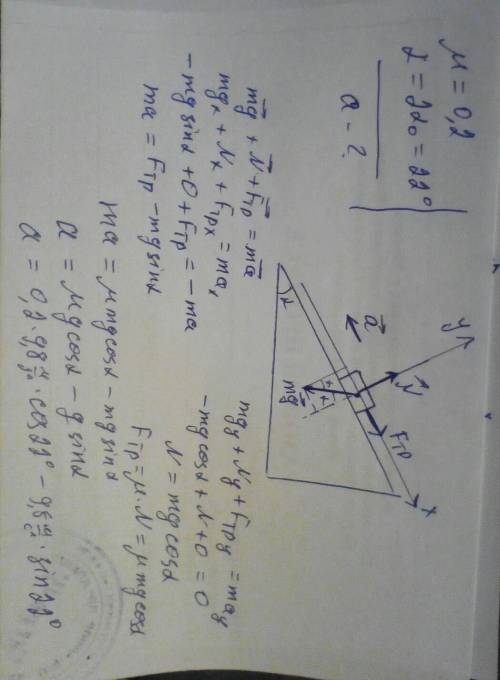 μ = 0,2
α = 2α₀ = 22°
a - ?
y
N⃗
Fтр
x
a⃗
mg⃗
α
α
mg⃗ + N⃗ + F⃗тр = ma⃗
mgx + Nx + Fтрx = max
-mg sinα + 0 + Fтр = -ma
ma = Fтр - mg sinα
mgy + Ny + Fтр y = may
-mg cosα + N + 0 = 0
N = mg cosα
Fтр = μ · N = μ mg cosα
ma = μ mg cosα - mg sinα
a = μg cosα - g sinα
a = 0,2 · 9,8 м/с² · cos22° - 9,8 м/с² · sin22°